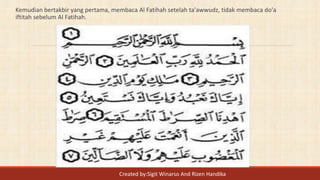 Kemudian bertakbir yang pertama, membaca Al Fatihah setelah ta'awwudz, tidak membaca do'a
iftitah sebelum Al Fatihah.
بِسْمِ اللَّهِ الرَّحْمَٰنِ الرَّحِيمِ ١
الْحَمْدُ لِلَّهِ رَبِّ الْعَالَمِينَ ٢ الرَّحْمَٰنِ
الرَّحِيمِ ٣ مَالِكِ يَوْمِ الدِّينِ ٤
إِيَّاكَ نَعْبُدُ وَإِيَّاكَ نَسْتَعِينُ ٥
اهْدِنَا الصِّرَاطَ الْمُسْتَقِيمَ ٦ صِرَاطَ
الَّذِينَ أَنْعَمْتَ عَلَيْهِمْ غَيْرِ
الْمَغْضُوبِ عَلَيْهِمْ وَلَا الضَّالِّينَ ٧
Created by:Sigit Winarso And Rizen Handika